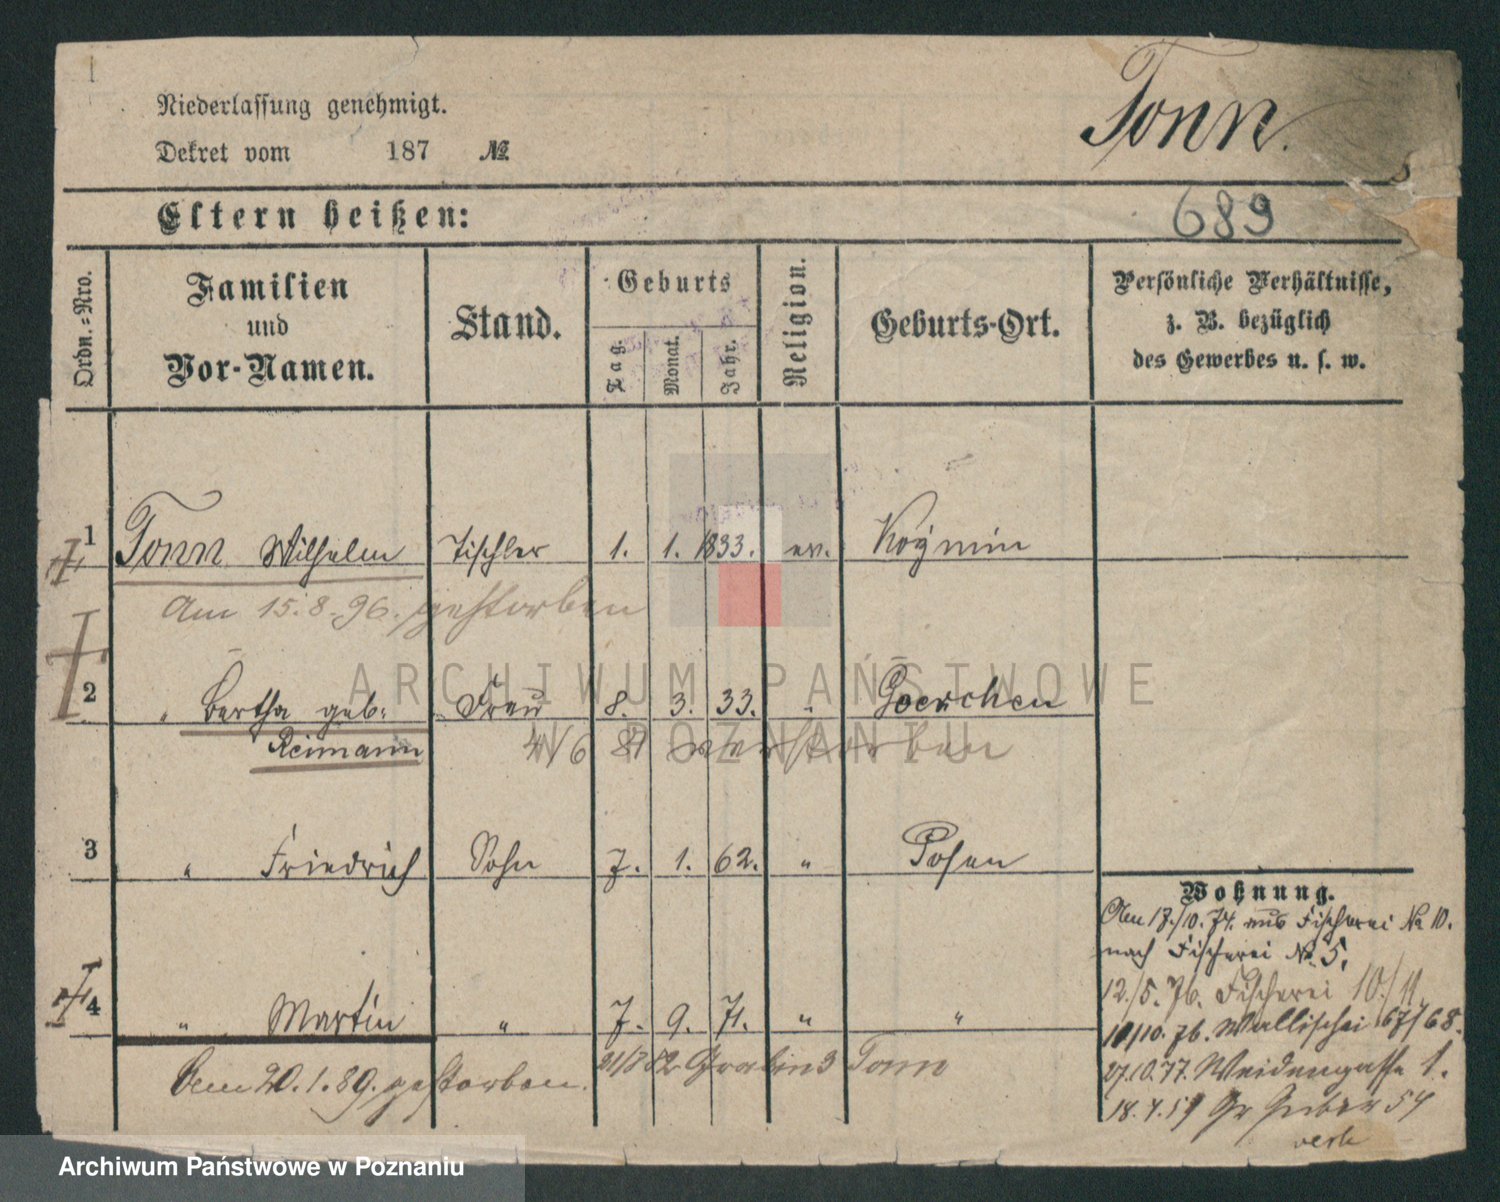 Niederlassung genehmigt.
Tonn.
Dekret vom 187 №
Eltern heißen:
689
Ordn.=Nro.
Familien
und
Vor-Namen.
Stand.
Geburts
Tag.
Monat.
Jahr.
Religion.
Geburts-Ort.
Persönliche Verhältnisse,
z. B. bezüglich
des Gewerbes u. s. w.
1 Tonn Wilhelm Tischler 1. 1. 1833. ev. Koÿmin
Am 15.8.96. gestorben
2 " Bertha geb: Frau 8. 3. 33. " Goerchen
Reimann 6 87 verstorben
3 " Friedrich Sohn 7. 1. 62. " Posen
4 " Martin " 7. 9. 71. " "
Dem 20.1.89. gestorben. 82 Graben 3 Tonn
Wohnung.
Am 17./10. 74. aus Fischerei № 10.
nach Fischerei № 5.
12./5. 76. Fischerei 10/11.
10/10. 76. Wallischei 67/68.
27.10.77. Weidengasse 1.
18.4. Gr Gerber 54
ARCHIWUM PAŃSTWOWE
W POZNANIU
Archiwum Państwowe w Poznaniu